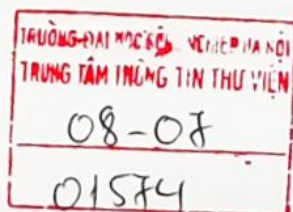 TRƯỜNG ĐẠI HỌC HÀ NỘI
TRUNG TÂM THÔNG TIN THƯ VIỆN
08-07
01574